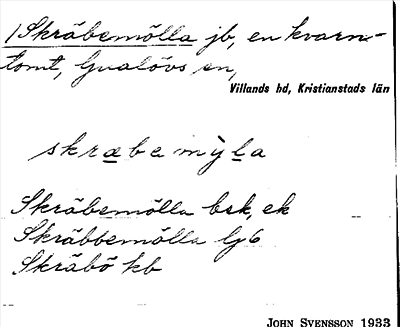 1 Skräbemölla jb, en kvarn-
tomt, Gualövs sn,
Villands hd, Kristianstads län
skrabemỳla
Skräbemölla bsk, ek
Skräbbemölla lj6
Skräbö kb
JOHN SVENSSON 1933